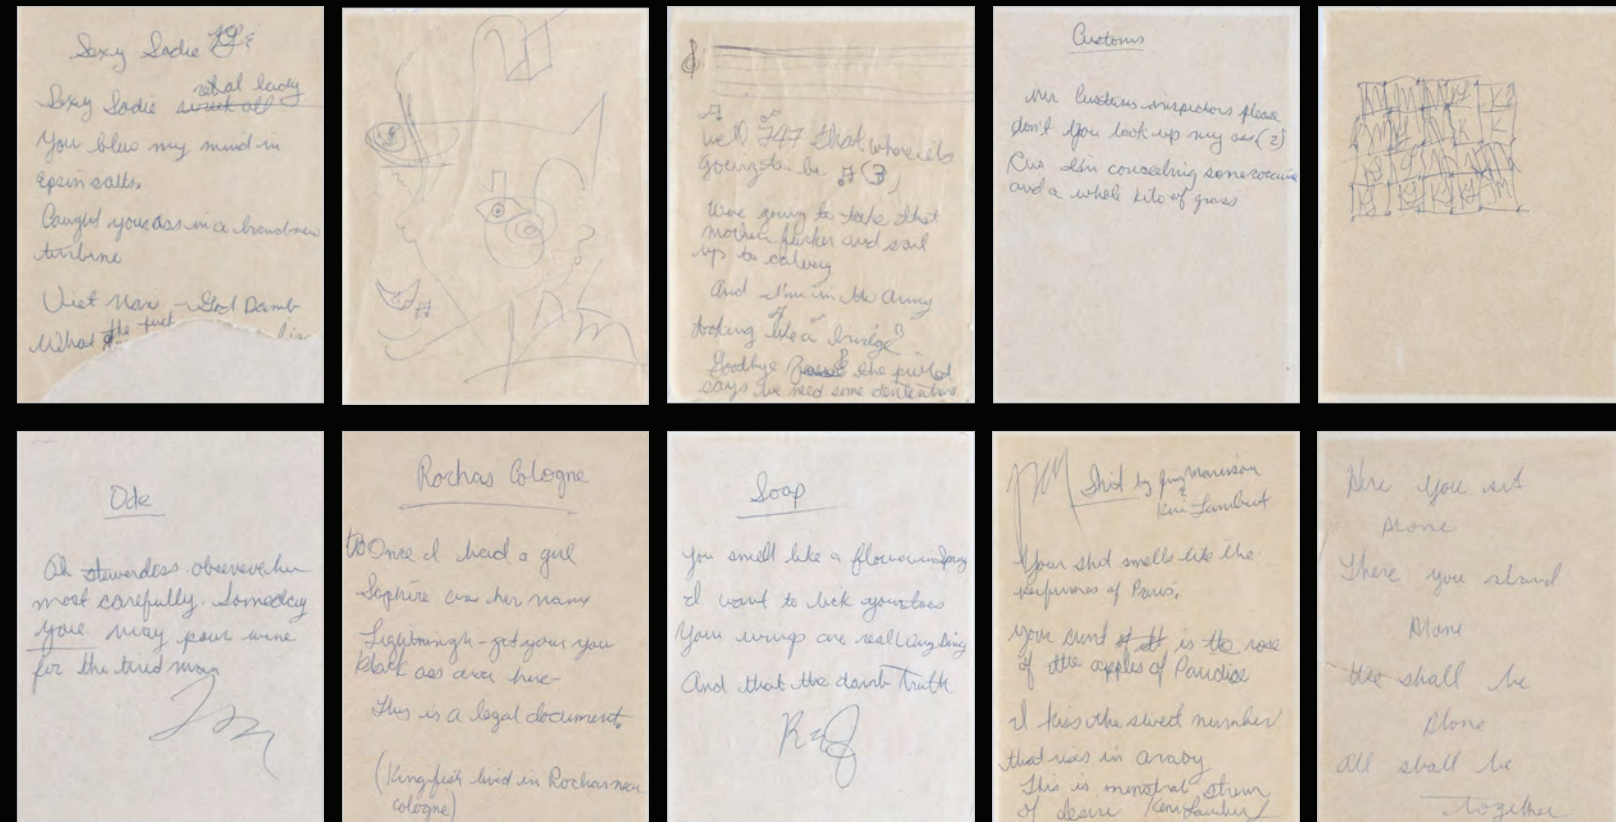 Sexy Sadie
rebal lady
Sexy Sadie
You blew my mind in
Epsin salts.
Caught your ass in a brand-new
turbine
Viet Nam - God Damb
What the fuck
well 747 that where its
going to be (3)
We're going to take that
mother fucker and sail
up to calvery
And I'm in the Army
looking like a bridge
Goodbye she purled
says we need some
Customs
Mr Customs inspectors please
don't you look up my ass (2)
Cus I'm concealing some cocaine
and a whole kilo of grass
M M M Kg K
K
Ode
Oh stewardess observe her
most carefully. Someday
youll may pour wine
for the tired man
Rochas Cologne
Once I had a girl
Saphire was her name
Lightningh - get your you
black ass over here-
This is a legal document.
(Kingfish lived in Rochas near
cologne)
Soap
You smell like a flower in Spring
I want to lick your toes
Your wings are really
And that the damb Truth
JM Shit by Jim Morrison
&
Keri Lambert
Your shit smells like the
perfumes of Paris,
your cunt is the rose
of the apples of Paradise
I kiss the sweet number
that rises in araby
This is menstral
of desire Keri Lambert
Here you sit
Alone
There you stand
Alone
We shall be
Alone
All shall be
together